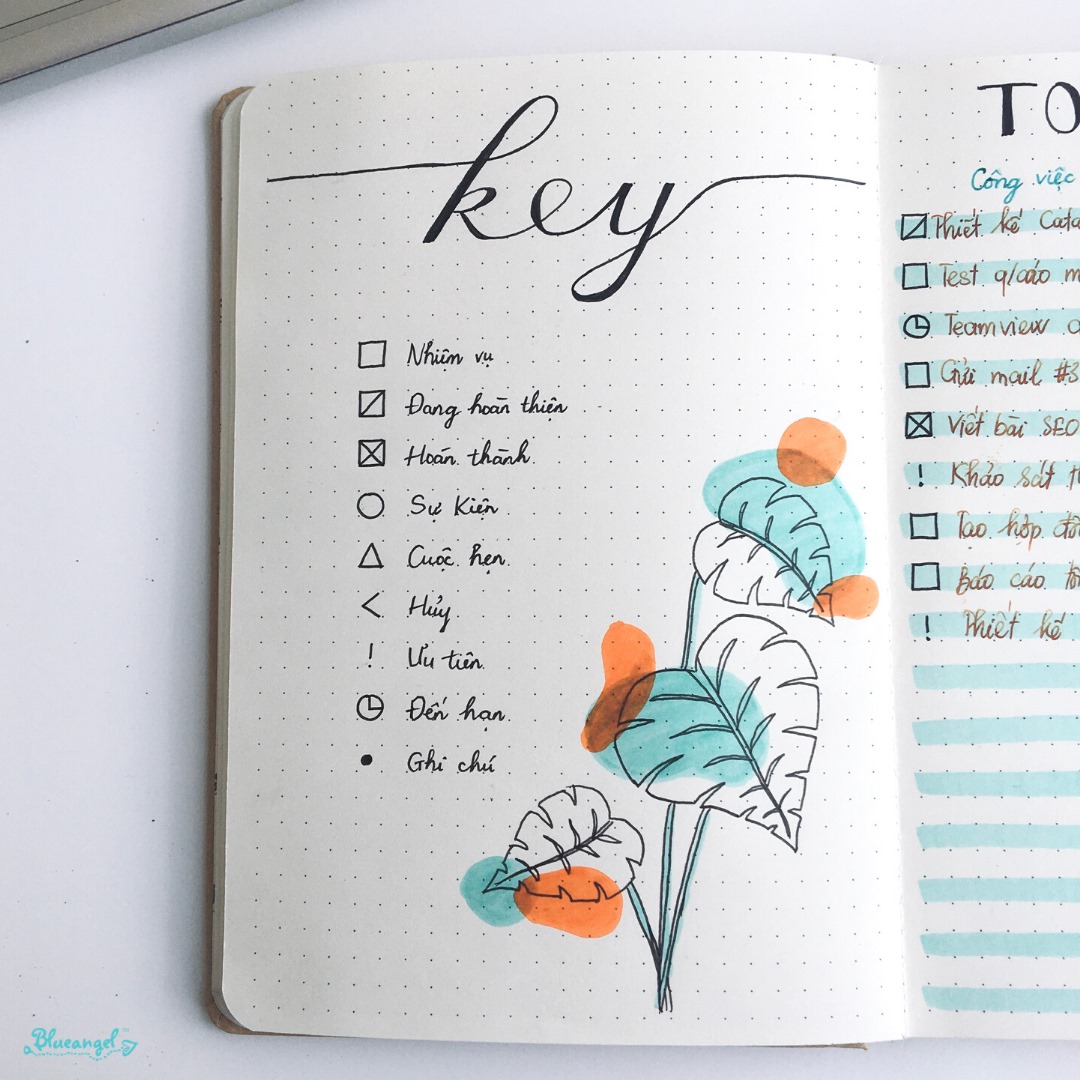 key
Nhiệm vụ
Đang hoàn thiện
Hoàn thành
Sự Kiện
Cuộc hẹn
Hủy
Ưu tiên
Đến hạn
Ghi chú
TO
Công việc
Thiết kế Cata
Test q/cáo m
Teamview
Gửi mail #3
Viết bài SEO
!
Khảo sát t
!
Tạo hợp đồ
Báo cáo
!
Thiết kế
Blueangel